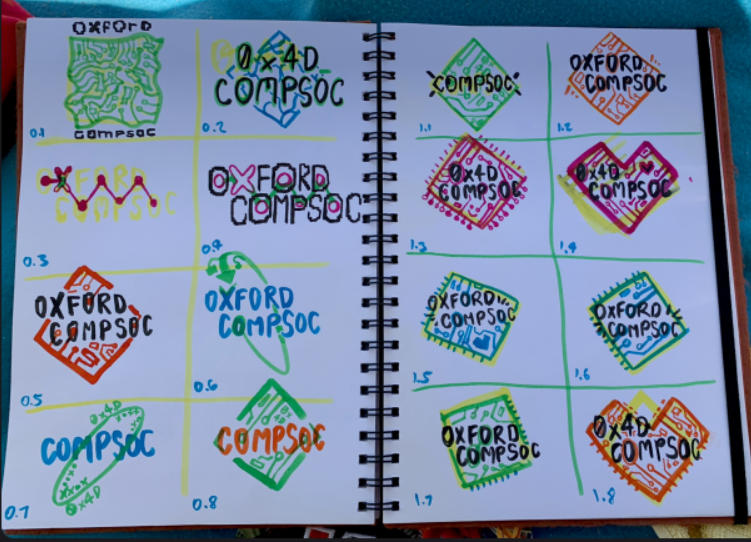 OXFORD
COMPSOC
0.1
0x4D
COMPSOC
0.2
OXFORD
COMPSOC
0.3
OXFORD
COMPSOC
0.4
OXFORD
COMPSOC
0.5
OXFORD
COMPSOC
0.6
0x4D
COMPSOC
0x4D
0.7
COMPSOC
0.8
COMPSOC
1.1
OXFORD
COMPSOC
1.2
0x4D
COMPSOC
1.3
0x4D
COMPSOC
1.4
OXFORD
COMPSOC
1.5
OXFORD
COMPSOC
1.6
OXFORD
COMPSOC
1.7
0x4D
COMPSOC
1.8